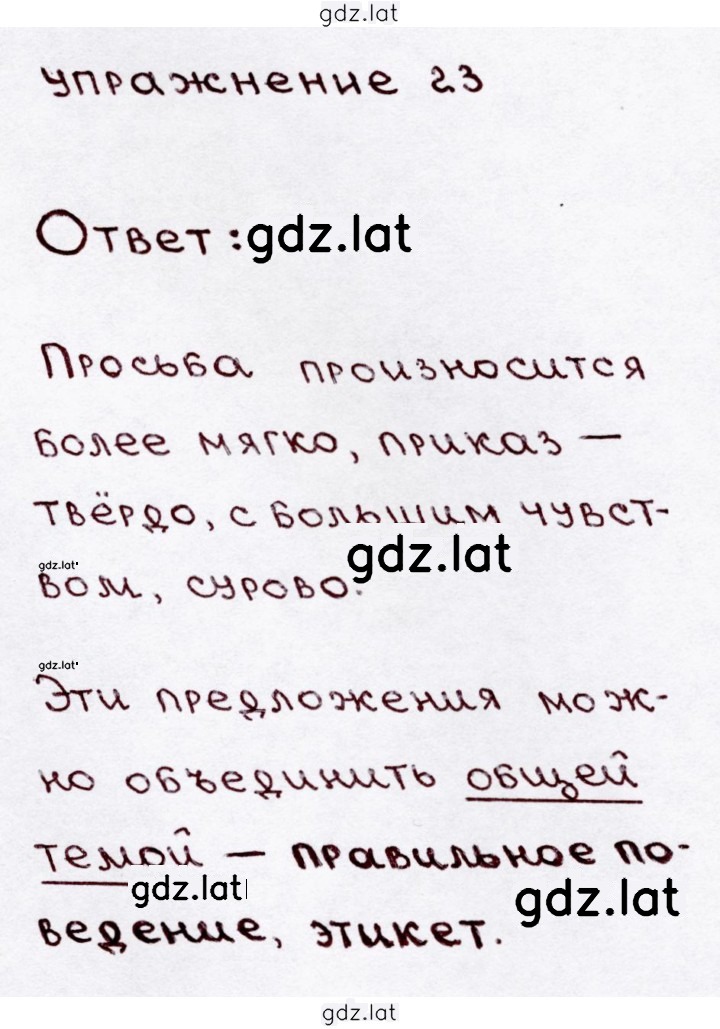 gdz.lat
упражнение 23
Ответ: gdz.lat
Просьба произносится
более мягко, приказ —
твёрдо, с большим чувст-
gdz.lat
gdz.lat
вом, сурово.
gdz.lat
Эти предложения мож-
но объединить общей
темой — правильное по-
gdz.lat gdz.lat
ведение, этикет.
gdz.lat